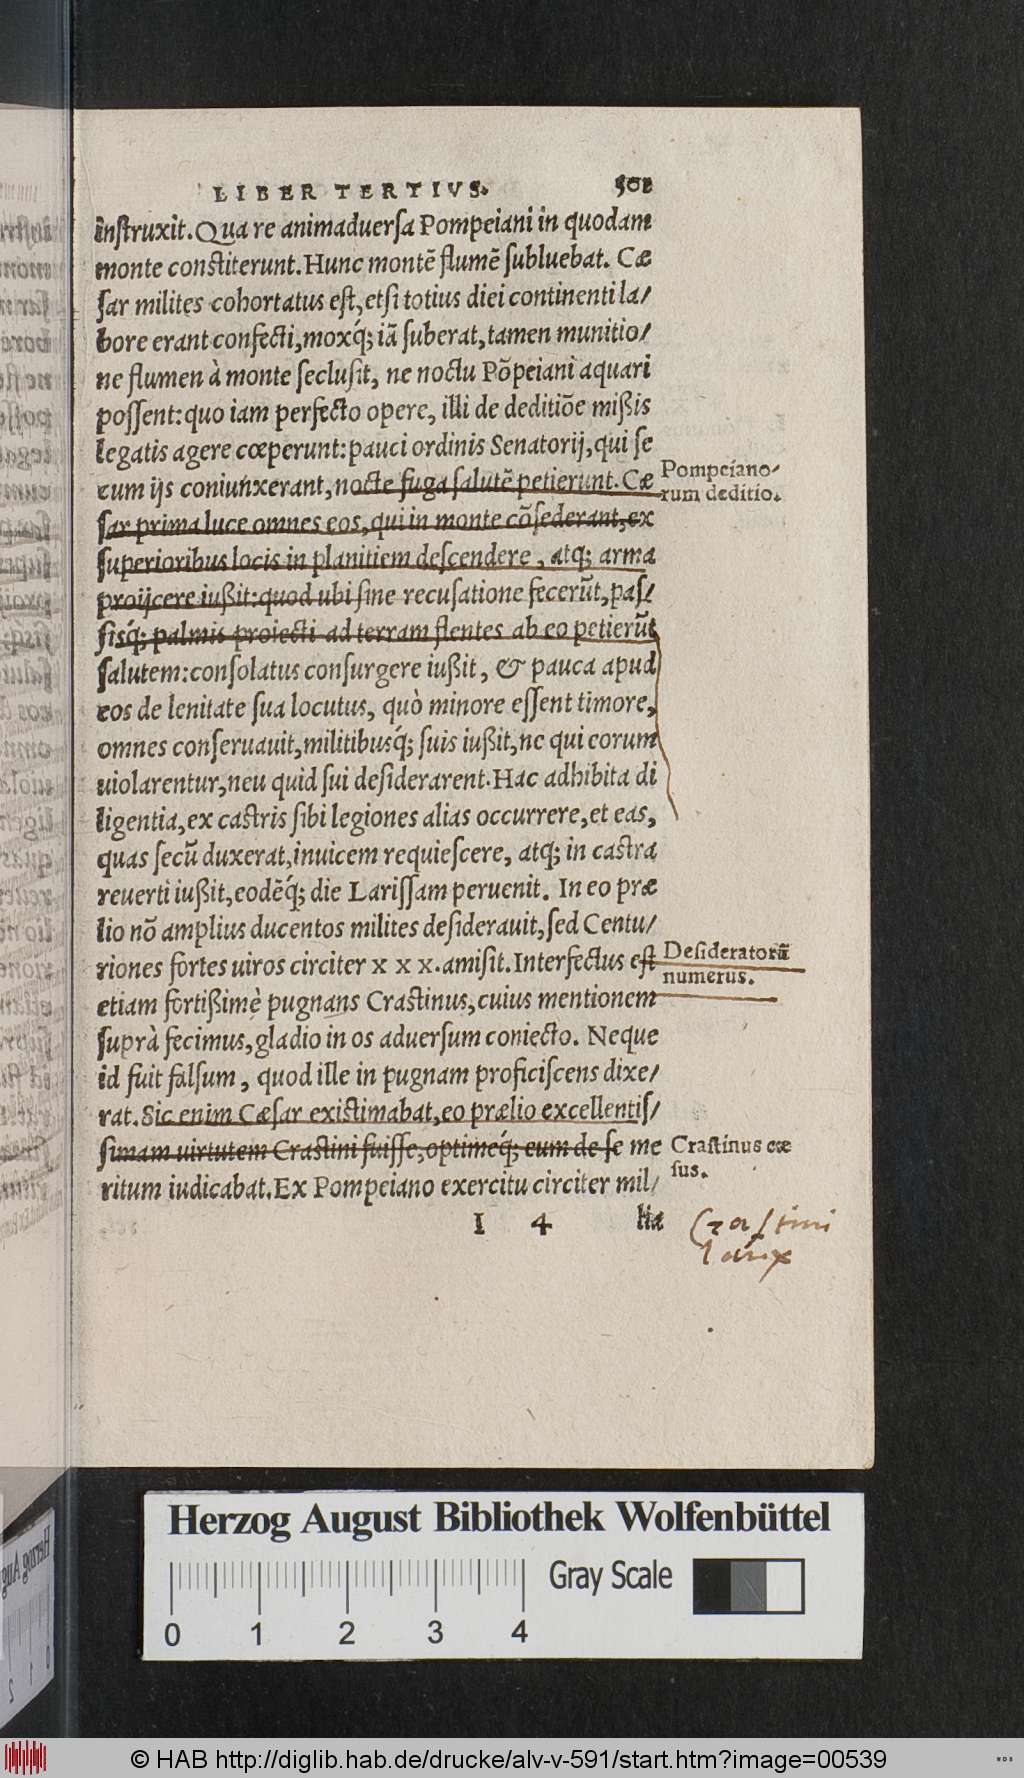 LIBER TERTIVS. 501
instruxit. Qua re animaduersa Pompeiani in quodam
monte constiterunt. Hunc montē flumē subluebat. Cæ
sar milites cohortatus est, etsi totius diei continenti la/
bore erant confecti, moxq́; iā suberat, tamen munitio/
ne flumen à monte seclusit, ne noctu Põpeiani aquari
possent: quo iam perfecto opere, illi de deditiõe mißis
legatis agere cœperunt: pauci ordinis Senatorij, qui se
cum ijs coniunxerant, nocte fuga salutē petierunt. Cæ
sar prima luce omnes eos, qui in monte cõsederant, ex
superioribus locis in planitiem descendere, atq; arma
proijcere iußit: quod ubi sine recusatione fecerūt, pas/
sisq́; palmis proiecti ad terram flentes ab eo petierūt
salutem: consolatus consurgere iußit, & pauca apud
eos de lenitate sua locutus, quò minore essent timore,
omnes conseruauit, militibusq́; suis iußit, ne qui eorum
uiolarentur, neu quid sui desiderarent. Hac adhibita di
ligentia, ex castris sibi legiones alias occurrere, et eas,
quas secū duxerat, inuicem requiescere, atq; in castra
reuerti iußit, eodēq́; die Larissam peruenit. In eo præ
lio nō amplius ducentos milites desiderauit, sed Centu/
riones fortes uiros circiter x x x. amisit. Interfectus est
etiam fortißimè pugnans Crastinus, cuius mentionem
suprà fecimus, gladio in os aduersum coniecto. Neque
id fuit falsum, quod ille in pugnam proficiscens dixe/
rat. Sic enim Cæsar existimabat, eo prælio excellentis/
simam uirtutem Crastini fuisse, optimeq́; eum de se me
ritum iudicabat. Ex Pompeiano exercitu circiter mil/
I 4 lia
Pompeiano-
rum deditio.
Desideratorū
numerus.
Crastinus cæ
sus.
Crastini
Herzog August Bibliothek Wolfenbüttel
0 1 2 3 4
Gray Scale
© HAB http://diglib.hab.de/drucke/alv-v-591/start.htm?image=00539